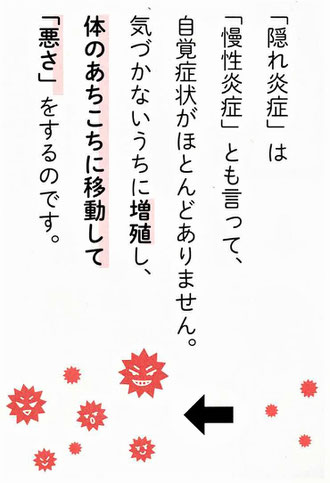 「隠れ炎症」は
「慢性炎症」とも言って、
自覚症状がほとんどありません。
気づかないうちに増殖し、
体のあちこちに移動して
「悪さ」をするのです。